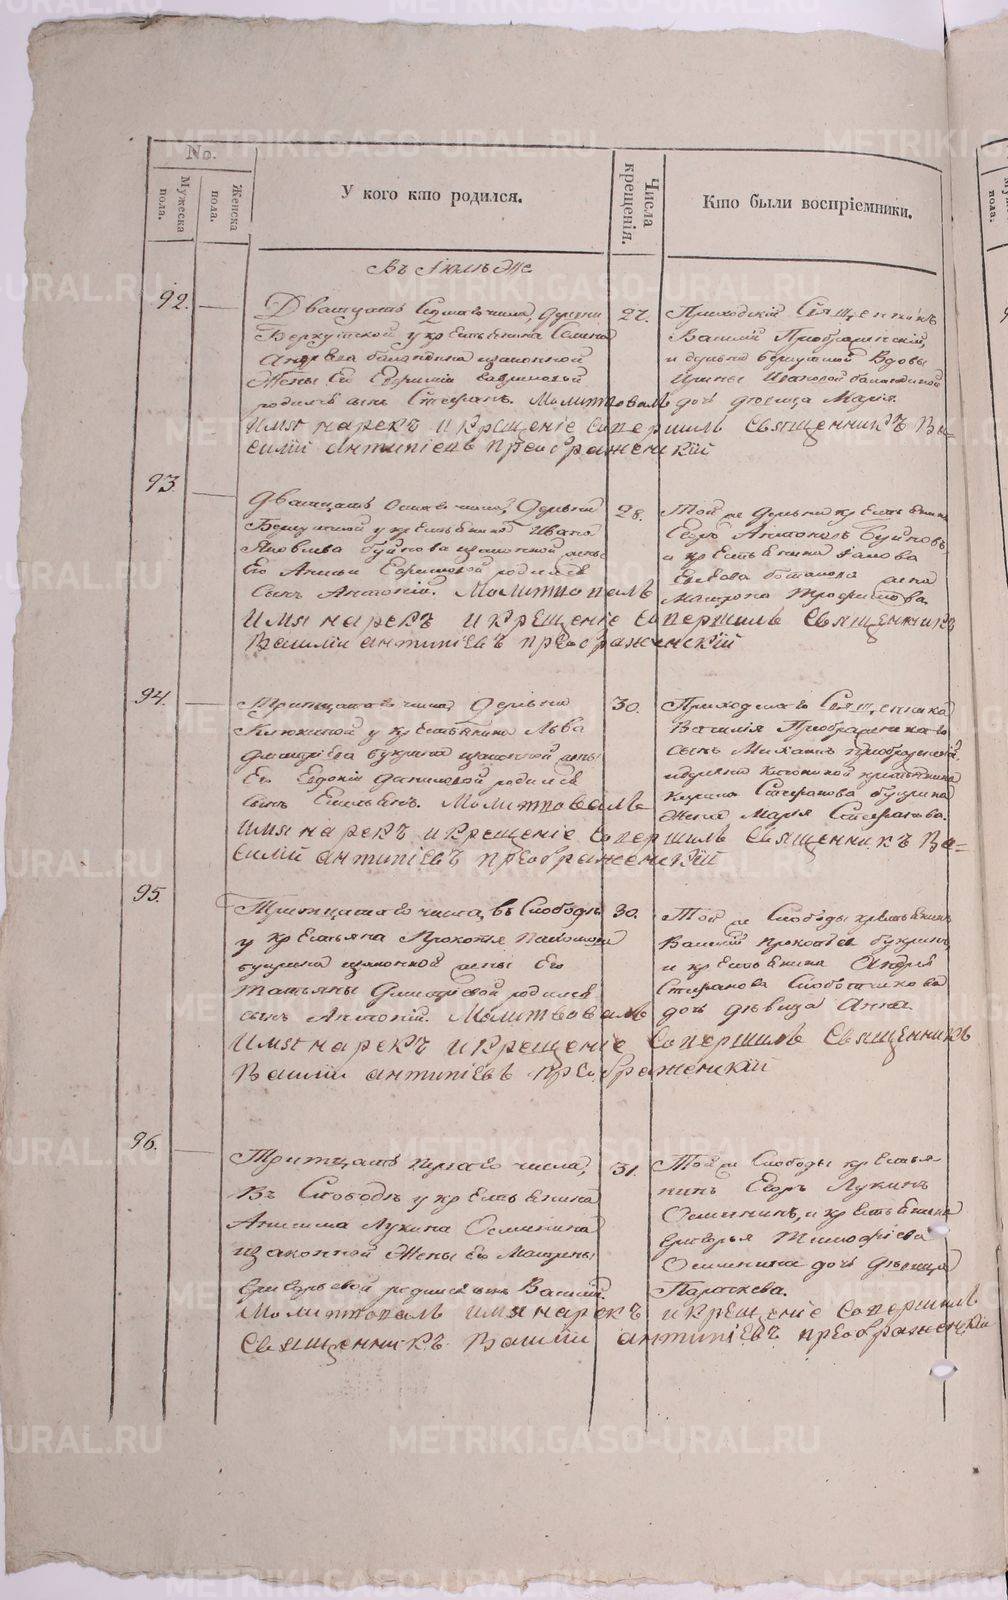 METRIKI.GASO-URAL.RU
No.
Мужеска пола.
Женска пола.
У кого кто родился.
Числа крещенія.
Кто были воспріемники.
Въ Іюлѣ Же
92.
Двацать Седмаго числа, деревни
у крестьянина
Андреева законной
Жены Ег
родился сынъ Стефанъ. Молитвовалъ
имя нарекъ и крещеніе совершилъ Священникъ Ва=
силій антипіевъ преображенскій
27.
Приходскій Священникъ
Василій Преображенскій,
и деревни Вдовы
Ирины Ивановой
дочь девица Марія.
93.
Двацать числа, деревни
у крестьянина Ивана
Яковлева законной жены
Его
сынъ Антоній. Молитвовалъ
имя нарекъ и крещеніе совершилъ Священникъ
Василій антипіевъ преображенскій
28.
Той же деревни крестьянинъ
Егоръ Антоновъ
и крестьянина
жена
Матрона Трофимова.
94.
Тритцатаго числа, деревни
у крестьянина Льва
Дмитріева Букрина законной жены
Его Евдокіи Даниловой родился
сынъ Емельянъ. Молитвовалъ
имя нарекъ и крещеніе совершилъ Священникъ Ва=
силій антипіевъ преображенскій
30.
Приходскаго Священника
Василія Преображенскаго
сынъ Михаилъ преображенской
и деревни крестьянина
Стефанова Букрина
Жена Марья Стефанова.
95.
Тритцатаго числа, въ Слободѣ
у крестьяна Прокопья Пахомова
Букрина законной жены Его
Татьяны Дмитріевой родился
сынъ Антоній. Молитвовалъ
имя нарекъ и крещеніе совершилъ Священникъ
Василій антипіевъ преображенскій
30.
Той же Слободы крестьянинъ
Василій Прокопьевъ Букринъ
и крестьянина Андрея
Стефанова
дочь дѣвица Анна
96.
Тритцать перваго числа,
Въ Слободѣ у крестьянина
Анисима Лукина Осминина
законной Жены Его Матрены
Григорьевой родился сынъ Василій.
Молитвовалъ имя нарекъ и крещеніе совершилъ
Священникъ Василій антипіевъ преображенскій
31.
Той же Слободы крестья
нинъ Егоръ Лукинъ
Осмининъ, и крестьянина
Григорья Тимофеева
Осминина дочь дѣвица
Параскева.